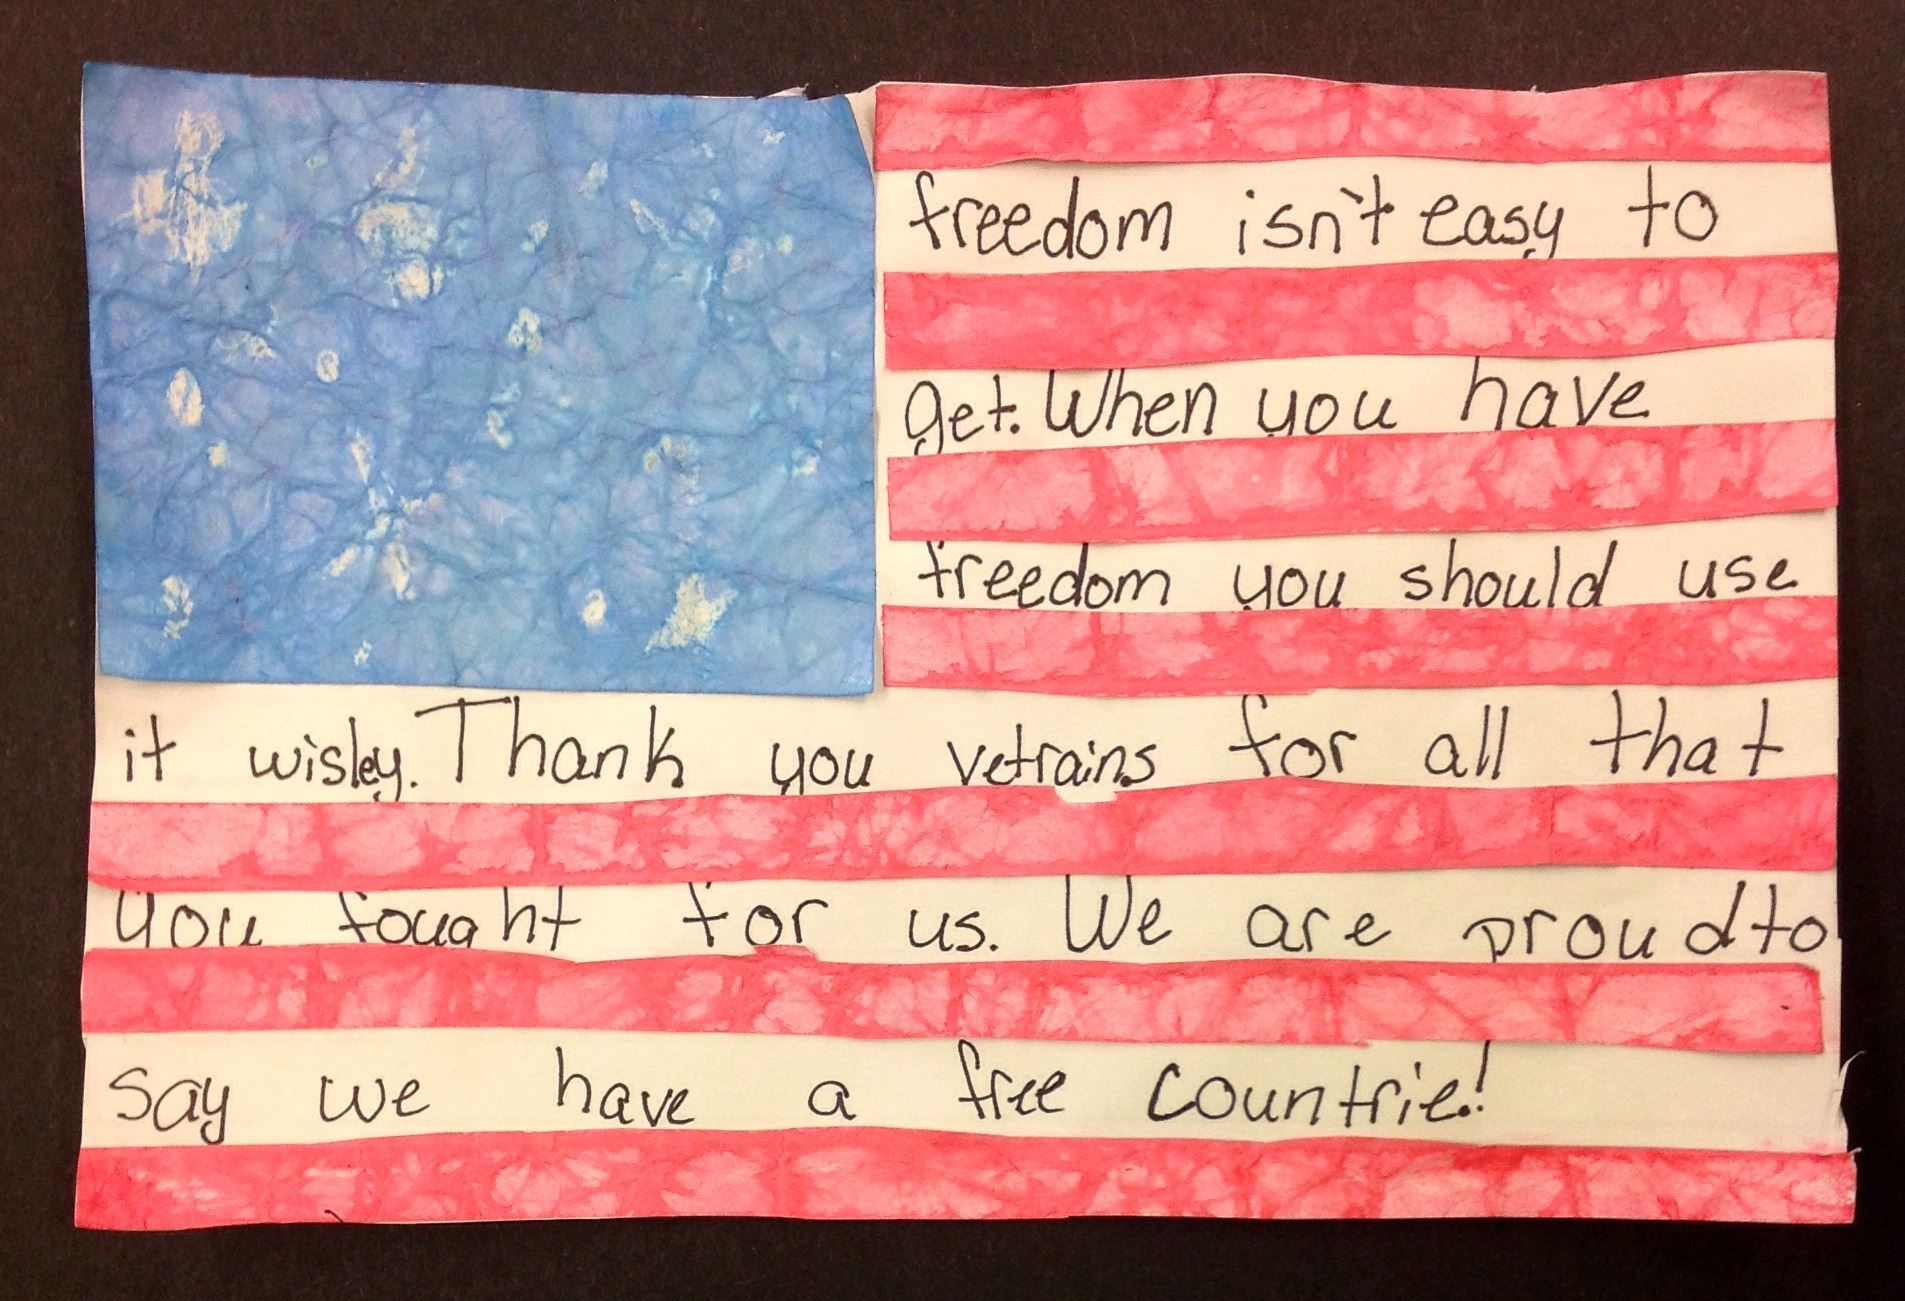 freedom isn't easy to
get. When you have
freedom you should use
it wisley. Thank you vetrains for all that
you fought for us. We are proud to
say we have a free countrie!